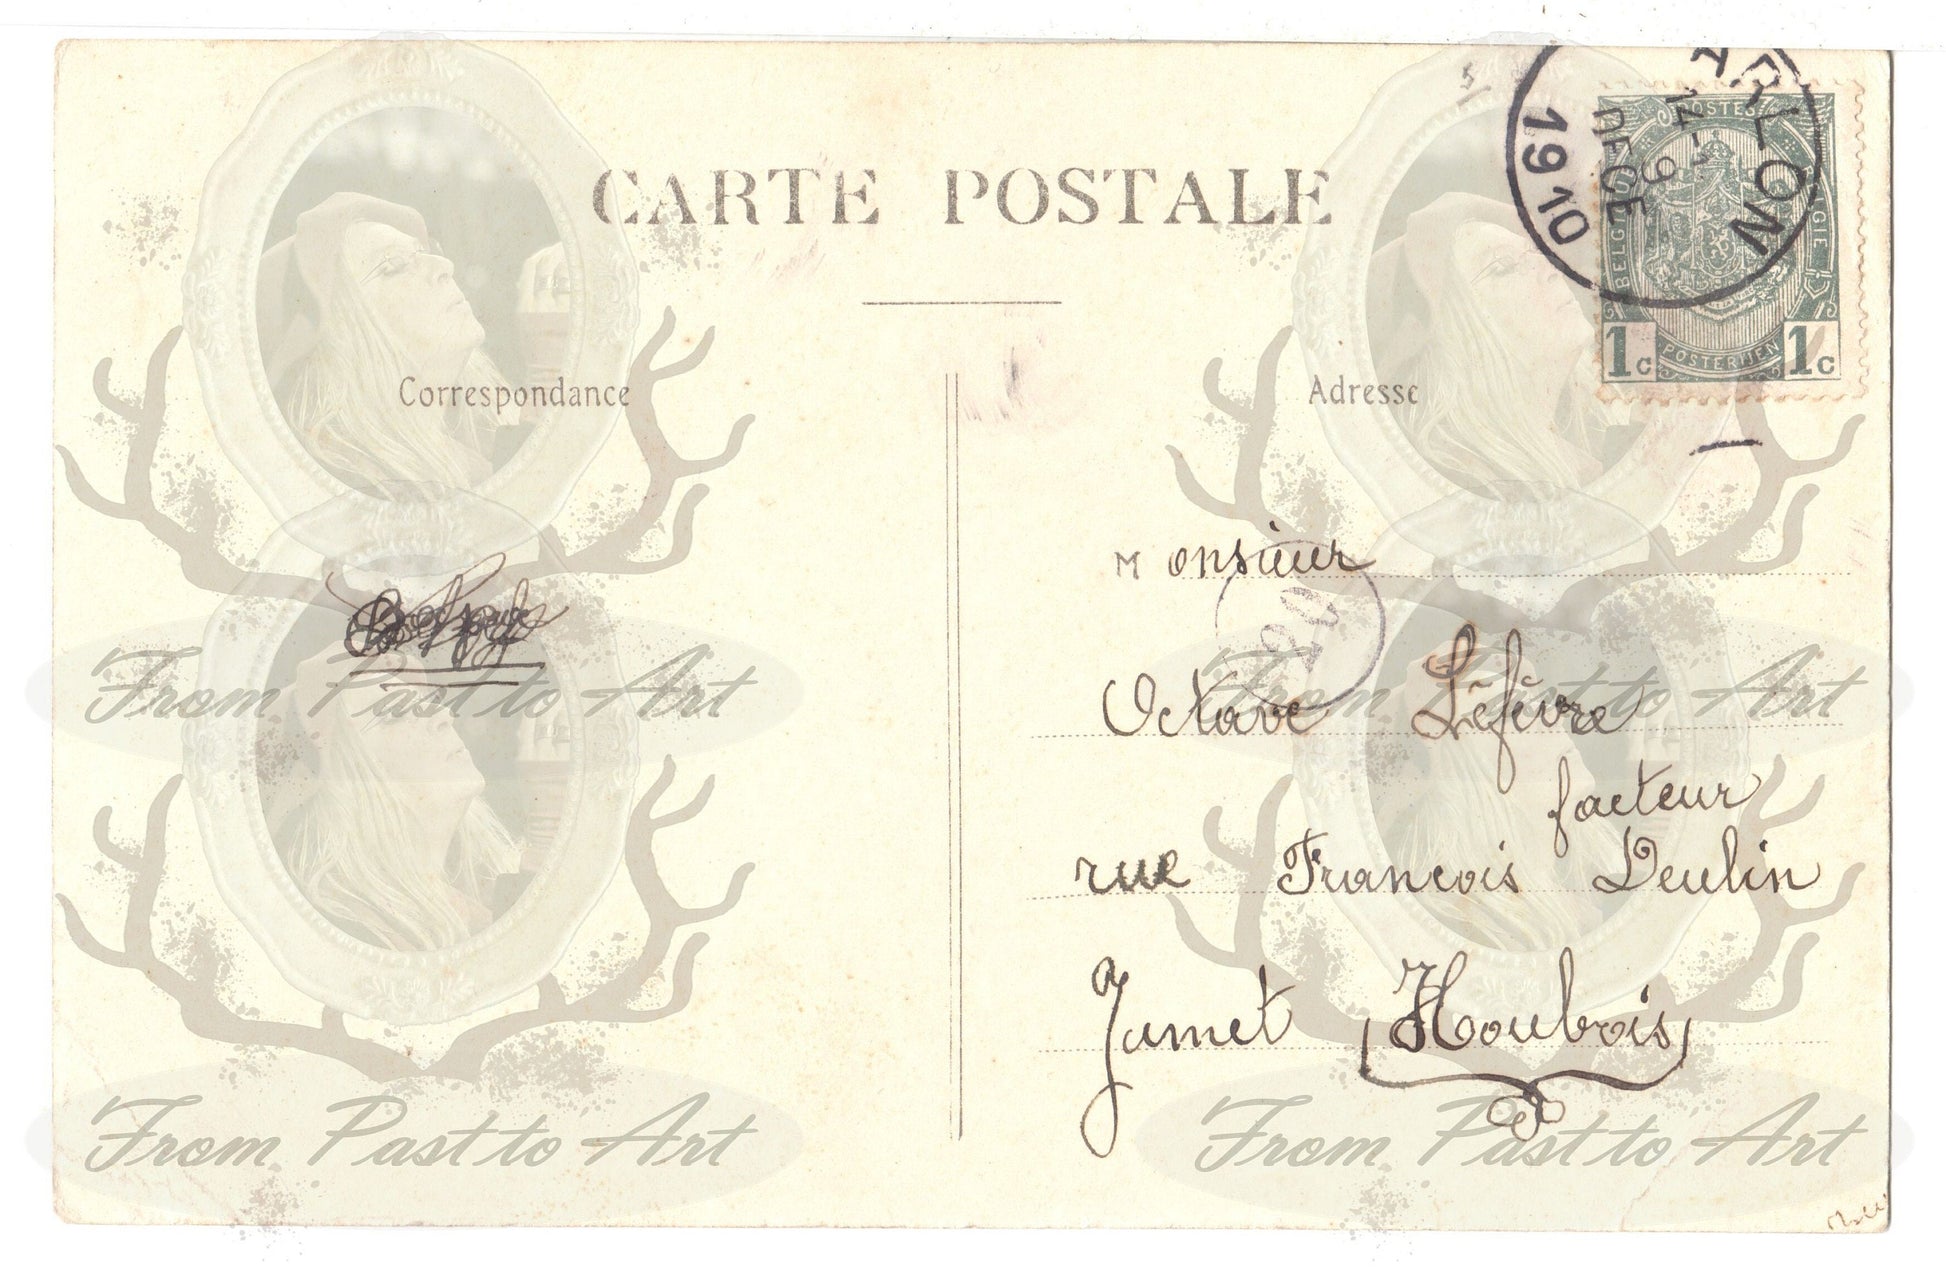 CARTE POSTALE
Correspondance
Adresse
ARLON
14-
9
DECE
1910
POSTES
BELGIQUE
BELGIE
1c POSTERIJEN 1c
Monsieur
Octave Lefèvre
facteur
rue Francois Deulin
Jumet (Houbois)
From Past to Art
From Past to Art
From Past to Art
From Past to Art